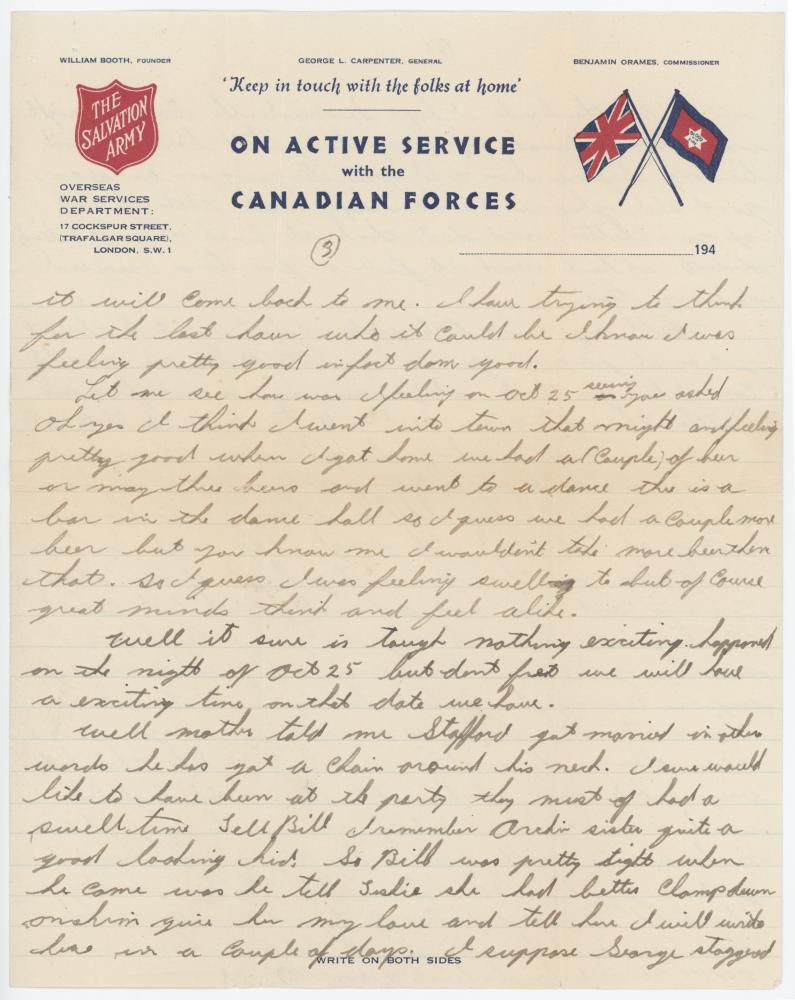 WILLIAM BOOTH, FOUNDER
GEORGE L. CARPENTER, GENERAL
BENJAMIN ORAMES, COMMISSIONER
THE
SALVATION
ARMY
'Keep in touch with the folks at home'
ON ACTIVE SERVICE
with the
CANADIAN FORCES
OVERSEAS
WAR SERVICES
DEPARTMENT:
17 COCKSPUR STREET,
(TRAFALGAR SQUARE),
LONDON, S.W. 1
(3)
194
it will come back to me. I have trying to think
for the last hour who it could be I know I was
feeling pretty good infact dam good.
Let me see how was I feeling on Oct 25 seeing you asked
Oh yes I think I went into town that night and feeling
pretty good when I got home we had a (Couple) of beer
or may three beers and went to a dance the is a
bar in the dance hall so I guess we had a couple more
beer but you know me I wouldent take more beer then
that. So I guess I was feeling swell to but of course
great minds think and feel alike.
Well it sure is tough nothing exciting happoned
on the night of Oct 25 but dont fret we will have
a exciting time on that date we have.
Well mother told me Stafford got married in other
words he has got a chain around his neck. I sure would
like to have been at the party they must of had a
swell time Tell Bill I remember Archie sister quite a
good looking kid. So Bill was pretty tight when
he came was he tell Leslie she had better clamp down
on him give her my love and tell her I will write
her in a couple of days. I suppose George staggered
WRITE ON BOTH SIDES